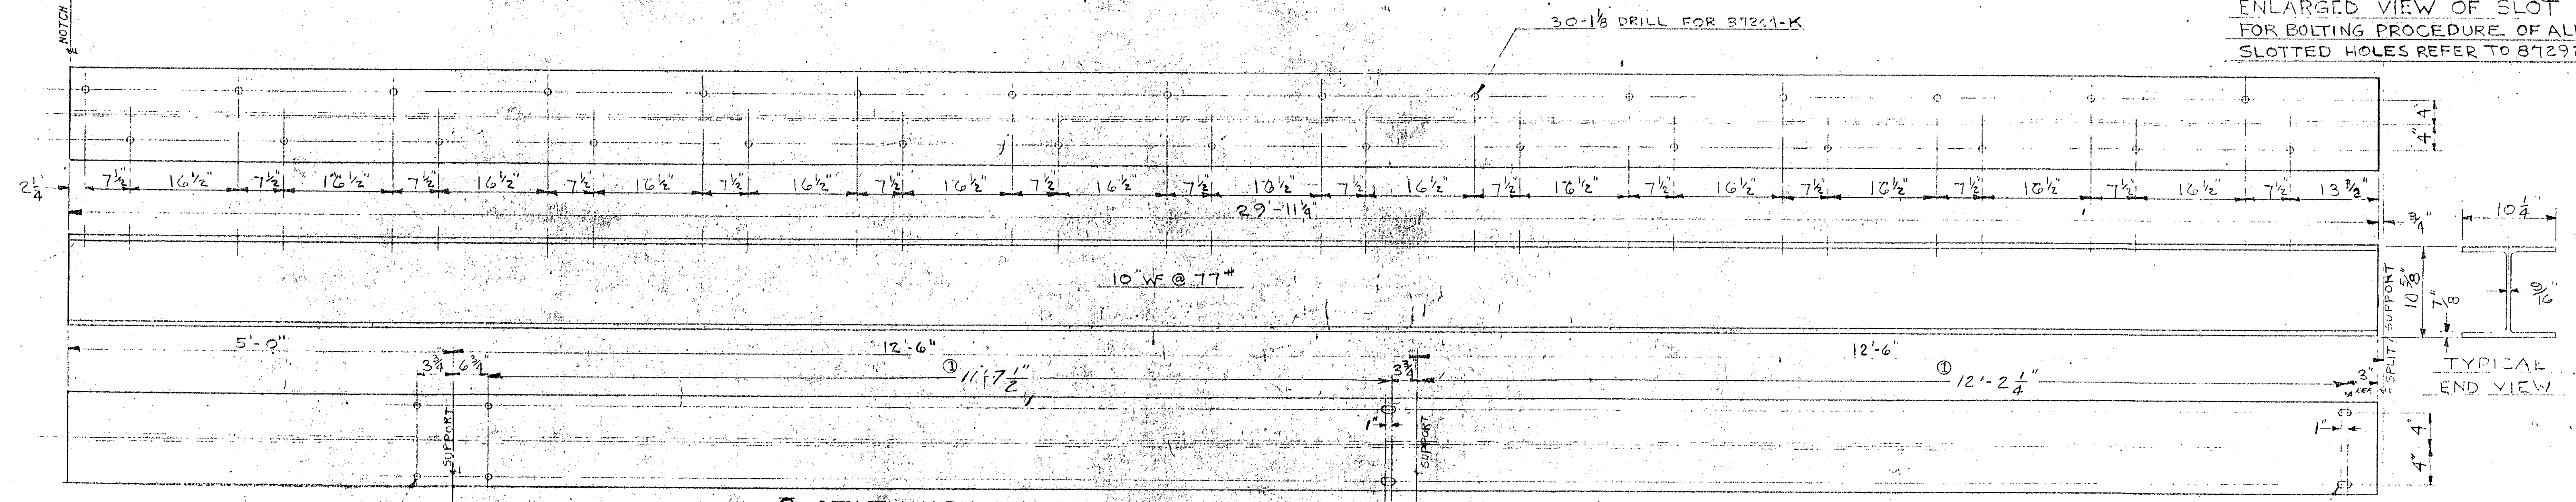 NOTCH
30-1⅛ DRILL FOR
ENLARGED VIEW OF SLOT
FOR BOLTING PROCEDURE OF
SLOTTED HOLES REFER TO
4" 4"
2¼ 7½" 16½" 7½" 16½" 7½" 16½" 7½" 16½" 7½" 16½" 7½" 16½" 7½" 16½" 7½" 16½" 7½" 16½" 7½" 16½" 7½" 16½" 7½" 16½" 7½" 16½" 7½" 16½" 7½"
29'-11¼"
¾"
10¼"
10" WF @ 77#
SPLIT/SUPPORT
10⅝"
⅞"
9/16"
5'-0"
12'-6"
12'-6"
TYPICAL
END VIEW
3¾" 6¾"
① 11'-7½"
3¾"
① 12'-2¼"
3"
REF.
SUPPORT
1"
SUPPORT
1"
4" 4"